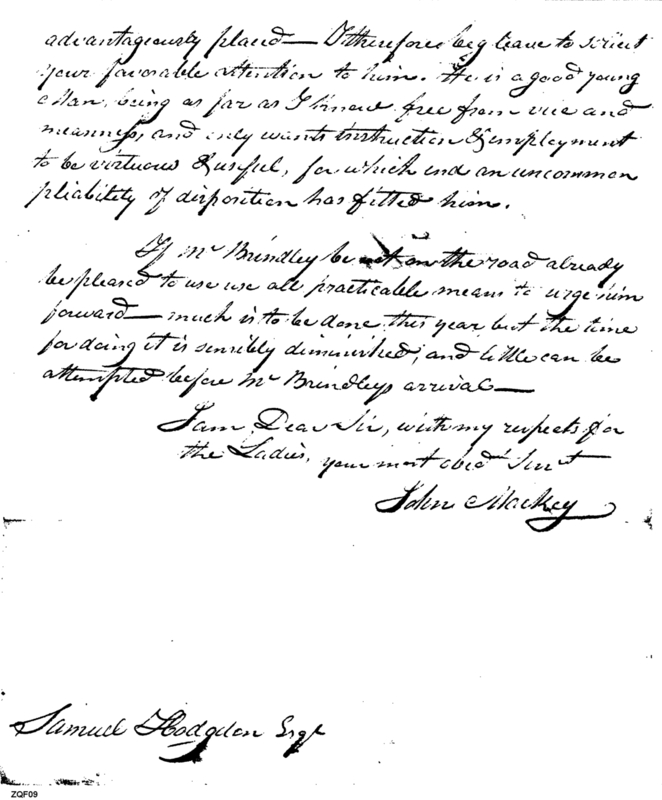 advantageously placed — I therefore beg leave to solicit
your favorable attention to him. He is a good young
Man, being as far as I know free from vice and
meanness, and only wants instruction & employment
to be virtuous & useful, for which end an uncommon
pliability of disposition has fitted him.
If Mr Brindley be not on the road already
be pleased to use use all practicable means to urge him
forward — much is to be done this year but the time
for doing it is sensibly diminished, and little can be
attempted before Mr Brindleys arrival —
I am, Dear Sir, with my respects for
the Ladies, your most obedt Servt
John Mackey
Samuel Hodgdon Esqr
ZQF09